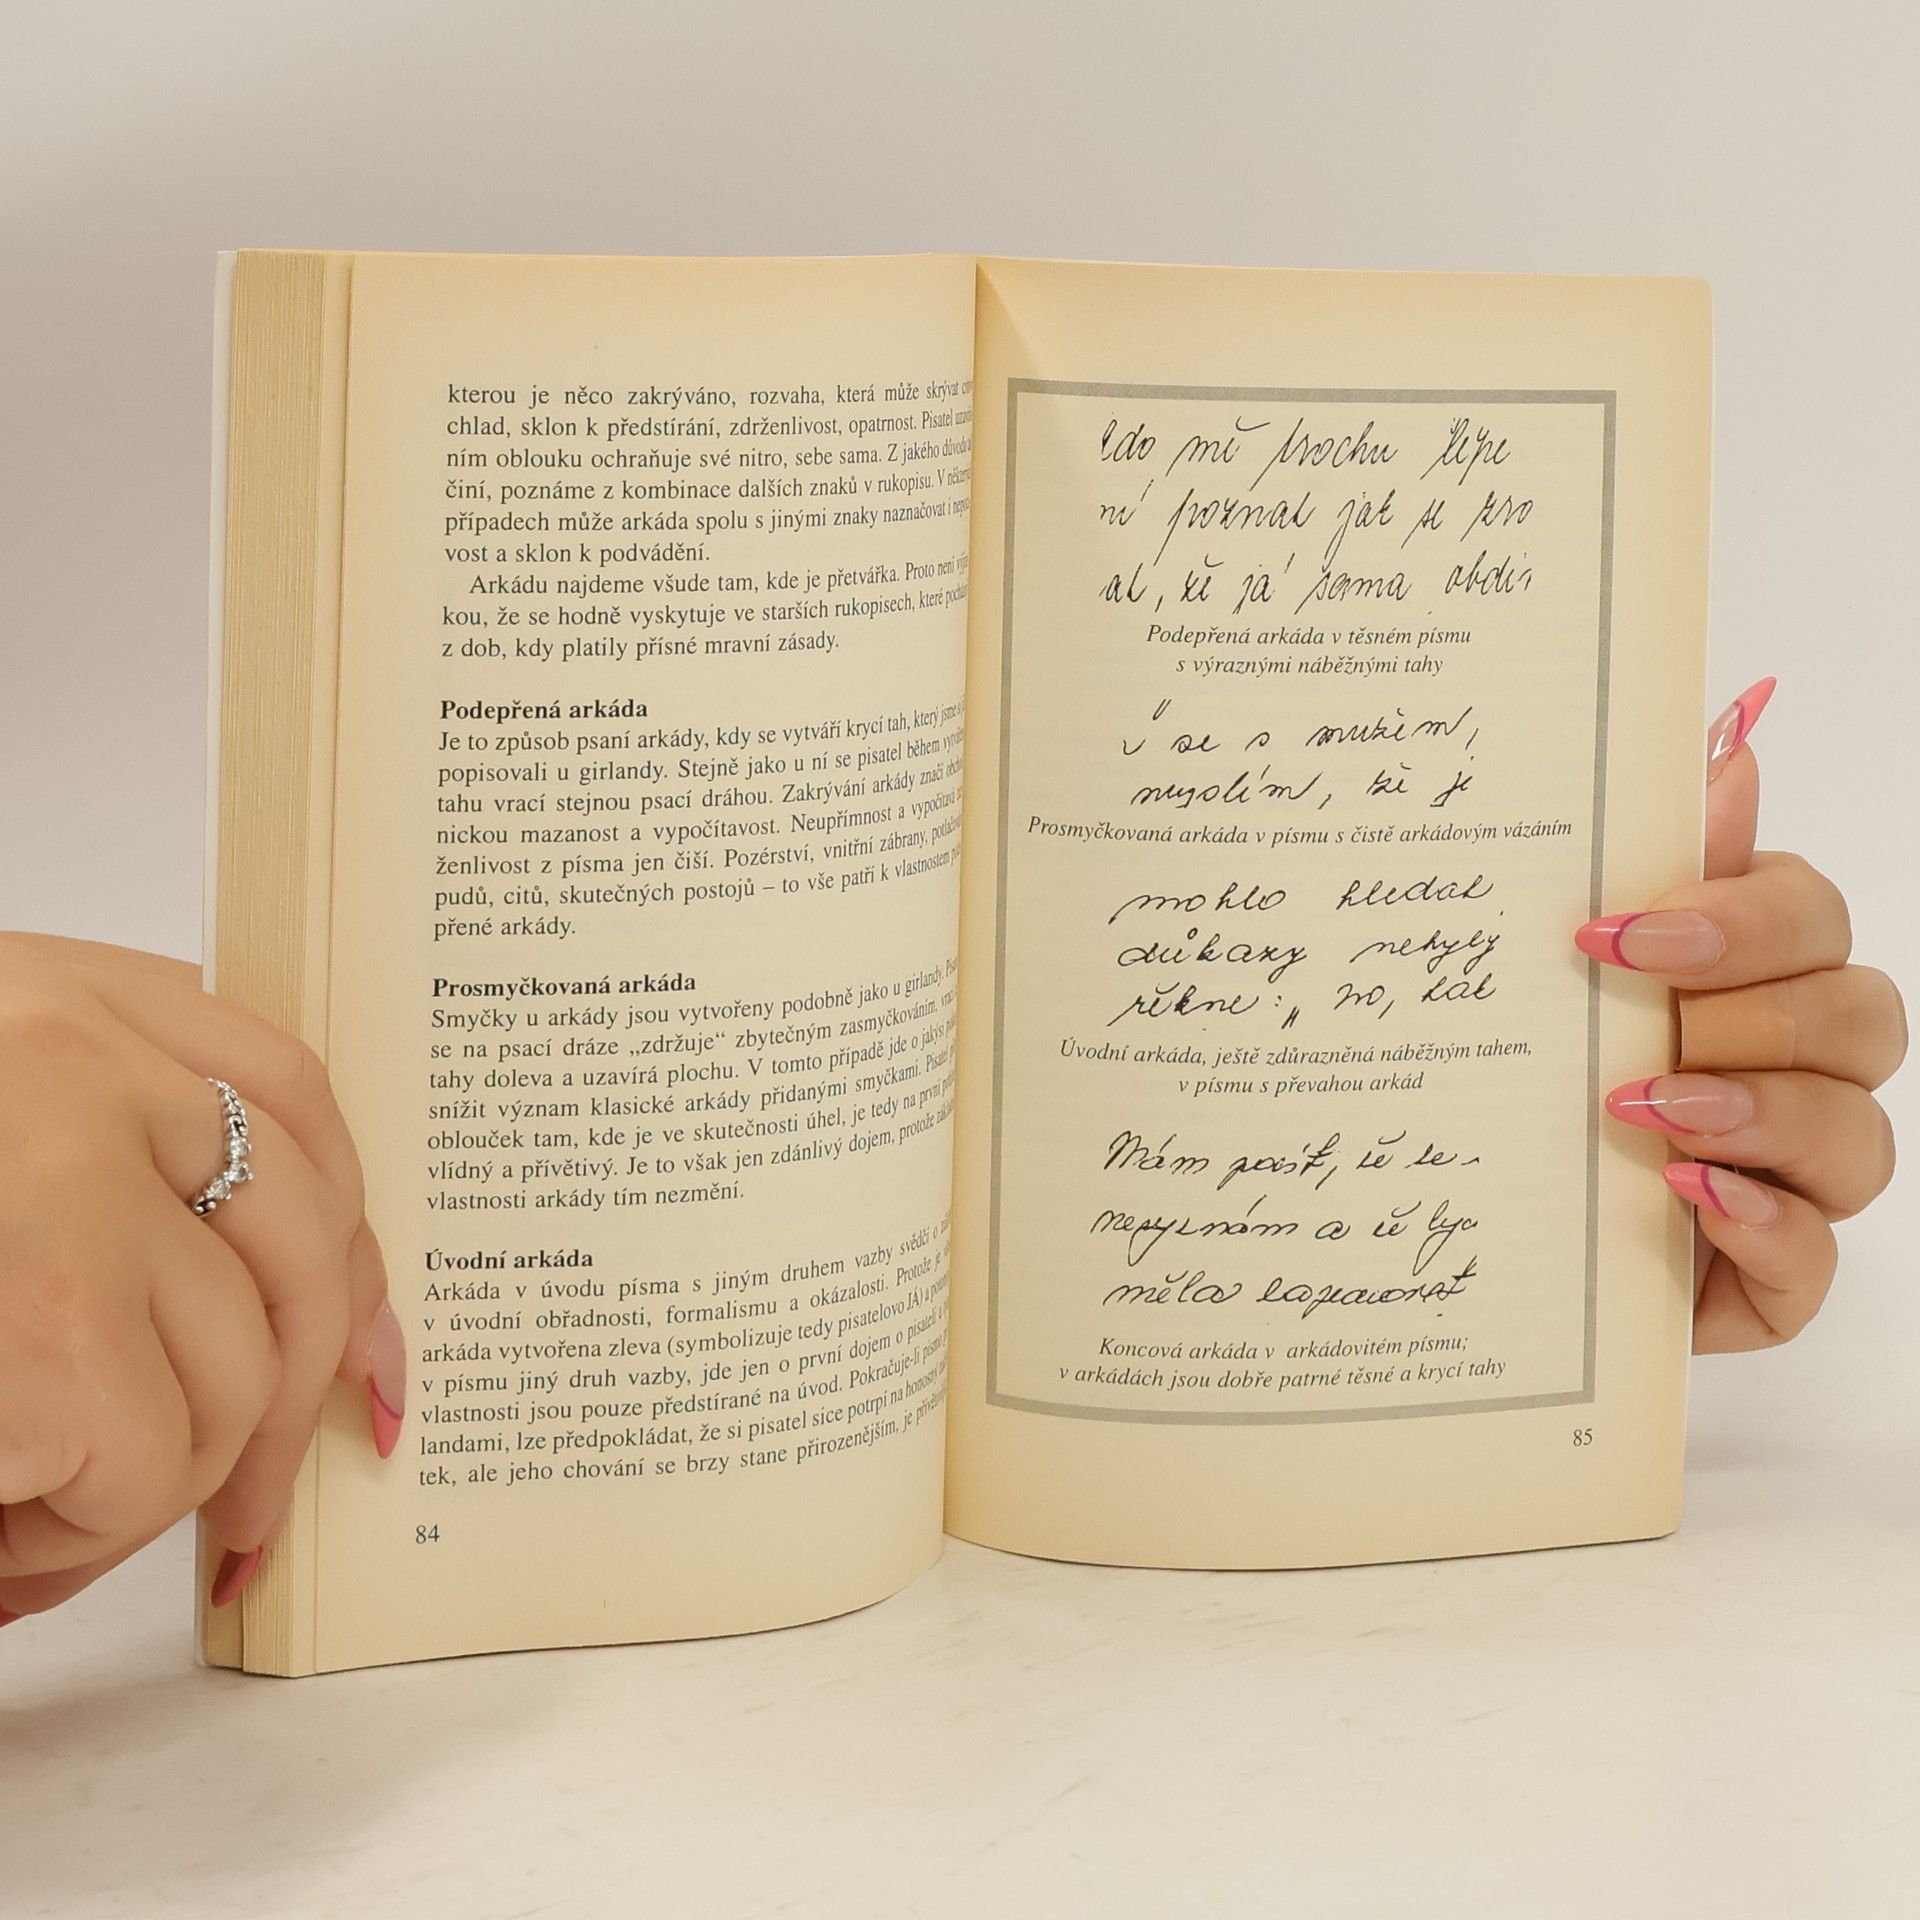 kterou je něco zakrýváno, rozvaha, která může skrývat
chlad, sklon k předstírání, zdrženlivost, opatrnost. Pisatel
ním oblouku ochraňuje své nitro, sebe sama. Z jakého důvodu
činí, poznáme z kombinace dalších znaků v rukopisu. V
případech může arkáda spolu s jinými znaky naznačovat i
vost a sklon k podvádění.
Arkádu najdeme všude tam, kde je přetvářka. Proto není
kou, že se hodně vyskytuje ve starších rukopisech, které
z dob, kdy platily přísné mravní zásady.
Podepřená arkáda
Je to způsob psaní arkády, kdy se vytváří krycí tah, který jsme
popisovali u girlandy. Stejně jako u ní se pisatel během
tahu vrací stejnou psací dráhou. Zakrývání arkády značí
nickou mazanost a vypočítavost. Neupřímnost a vypočítavá
ženlivost z písma jen čiší. Pozérství, vnitřní zábrany,
pudů, citů, skutečných postojů – to vše patří k vlastnostem
přené arkády.
Prosmyčkovaná arkáda
Smyčky u arkády jsou vytvořeny podobně jako u girlandy.
se na psací dráze „zdržuje“ zbytečným zasmyčkováním,
tahy doleva a uzavírá plochu. V tomto případě jde o jakýsi
snížit význam klasické arkády přidanými smyčkami. Pisatel
oblouček tam, kde je ve skutečnosti úhel, je tedy na první
vlídný a přívětivý. Je to však jen zdánlivý dojem, protože
vlastnosti arkády tím nezmění.
Úvodní arkáda
Arkáda v úvodu písma s jiným druhem vazby svědčí o
v úvodní obřadnosti, formalismu a okázalosti. Protože je
arkáda vytvořena zleva (symbolizuje tedy pisatelovo JÁ) a
v písmu jiný druh vazby, jde jen o první dojem o pisateli a
vlastnosti jsou pouze předstírané na úvod. Pokračuje-li písmo
landami, lze předpokládat, že si pisatel sice potrpí na honosný
tek, ale jeho chování se brzy stane přirozenějším, je
84
mě trochu lépe
ní poznat jak se
at, že já sama
Podepřená arkáda v těsném písmu
s výraznými náběžnými tahy
se s mužem,
myslím, že je
Prosmyčkovaná arkáda v písmu s čistě arkádovým vázáním
mohlo hledat
důkazy nebyly
řekne: „ no, tak
Úvodní arkáda, ještě zdůrazněná náběžným tahem,
v písmu s převahou arkád
Mám pocit, že se
nevyznám a že bych
měla
Koncová arkáda v arkádovitém písmu;
v arkádách jsou dobře patrné těsné a krycí tahy
85